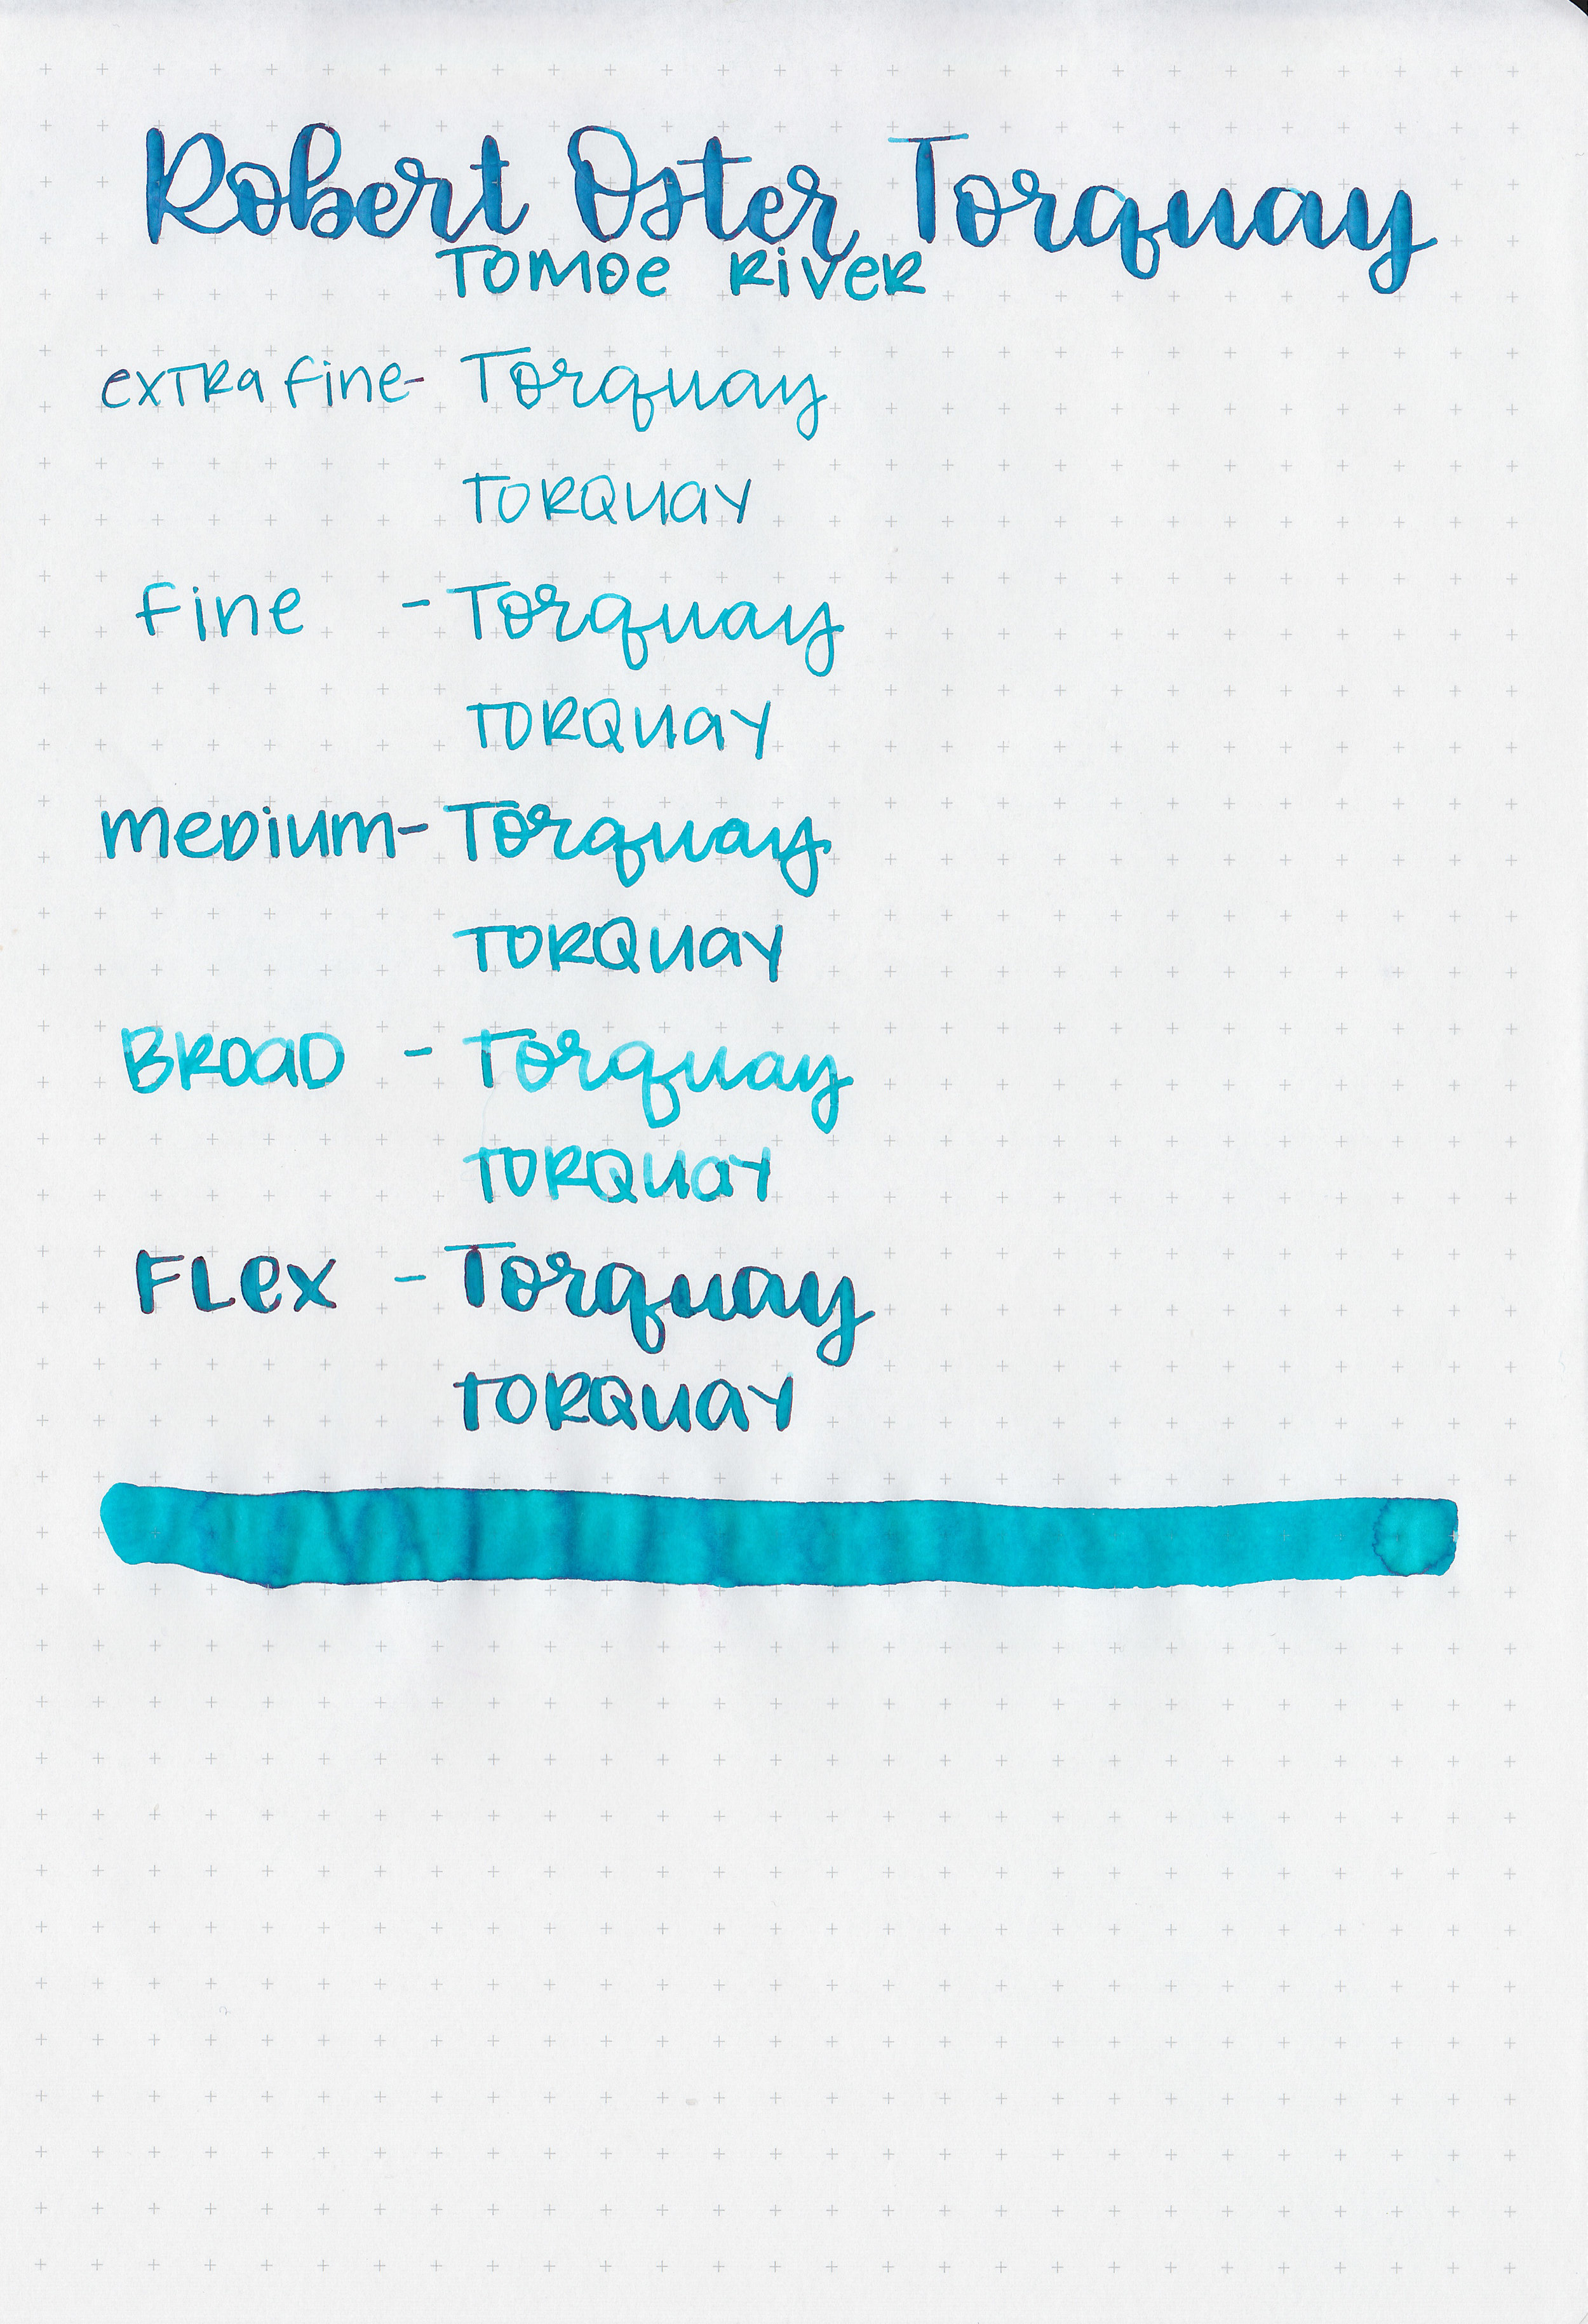 Robert Oster Torquay
TOMOE RiVeR
exTRa fine- Torquay
TORQuay
fine - Torquay
TORQuay
meDium- Torquay
TORQuay
BROaD - Torquay
TORQuay
FLex - Torquay
TORQuay